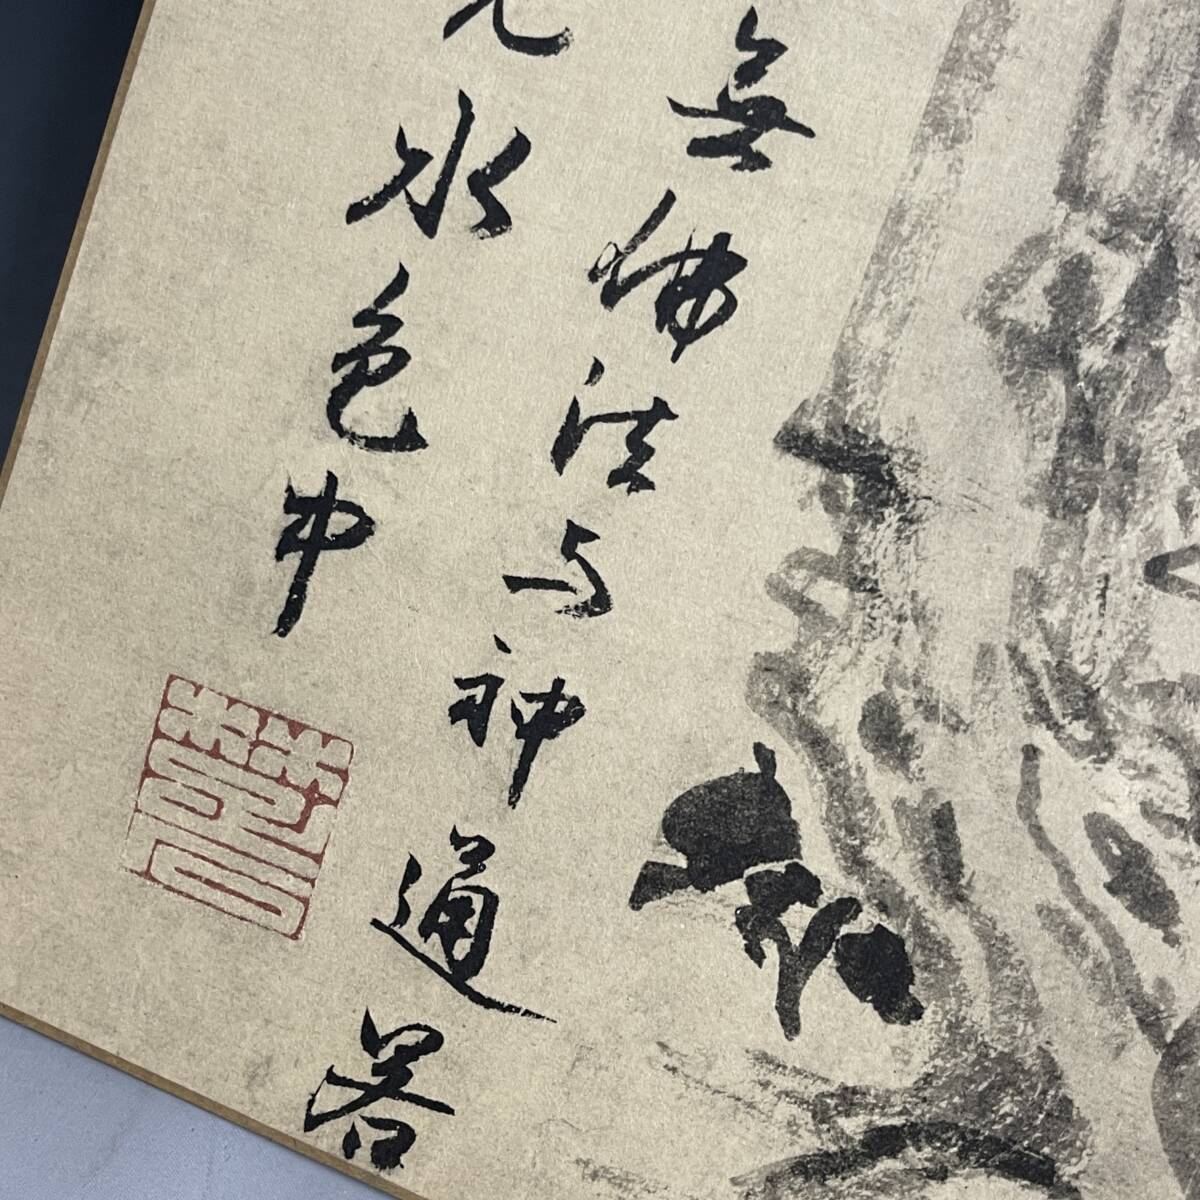 無佛法与神通畧
光水色中